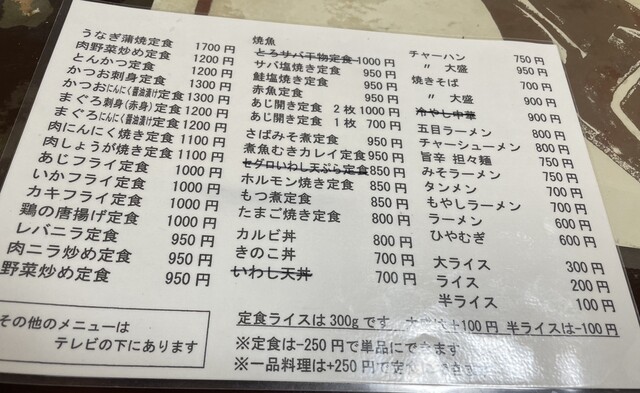 うなぎ蒲焼定食 1700円
肉野菜炒め定食 1200円
とんかつ定食 1200円
かつお刺身定食 1200円
かつおにんにく醤油漬け定食 1300円
まぐろ刺身(赤身)定食 1200円
まぐろにんにく醤油漬け定食 1300円
肉にんにく焼き定食 1100円
肉しょうが焼き定食 1100円
あじフライ定食 1000円
いかフライ定食 1000円
カキフライ定食 1000円
鶏の唐揚げ定食 1000円
レバニラ定食 950円
肉ニラ炒め定食 950円
野菜炒め定食 950円
その他のメニューは
テレビの下にあります
焼魚
とろサバ干物定食1000円
サバ塩焼き定食 950円
鮭塩焼き定食 950円
赤魚定食 950円
あじ開き定食 2枚 1000円
あじ開き定食 1枚 700円
さばみそ煮定食 950円
煮魚むきカレイ定食950円
セグロいわし天ぷら定食850円
ホルモン焼き定食 850円
もつ煮定食 850円
たまご焼き定食 800円
カルビ丼 800円
きのこ丼 700円
いわし天丼 700円
チャーハン 750円
〃 大盛 950円
焼きそば 700円
〃 大盛 900円
冷やし中華 900円
五目ラーメン 800円
チャーシューメン 800円
旨辛 担々麺 750円
みそラーメン 750円
タンメン 700円
もやしラーメン 700円
ラーメン 600円
ひやむぎ 600円
大ライス 300円
ライス 200円
半ライス 100円
定食ライスは300gです +100円 半ライスは-100円
※定食は-250円で単品にできます
※一品料理は+250円で